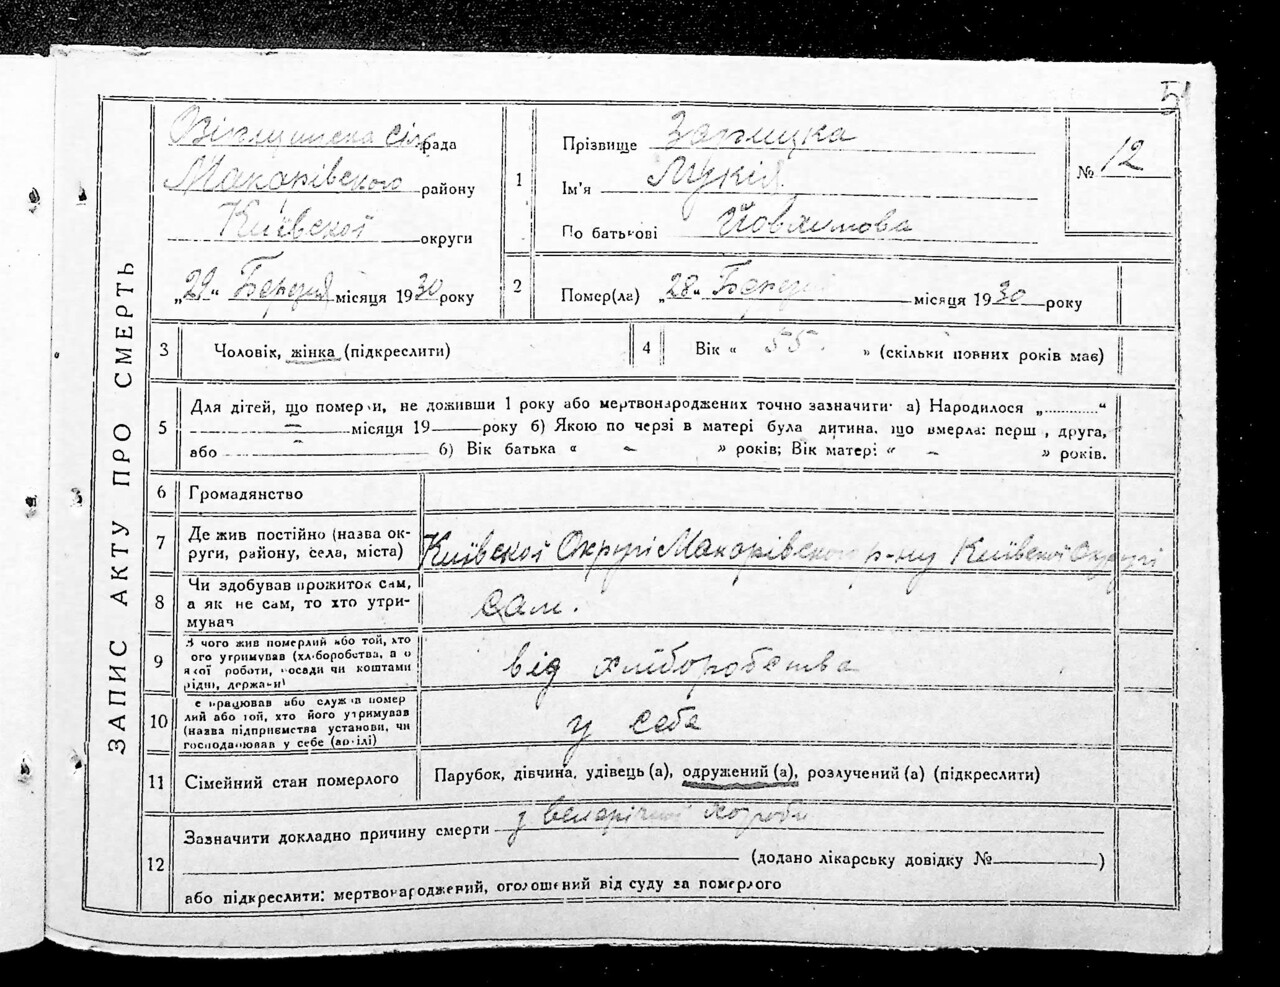 51
ЗАПИС АКТУ ПРО СМЕРТЬ
рада
Макарівского району
Київскої округи
„29“ Березня місяця 1930 року
1
Прізвище
Ім'я Лукія
По батькові Йовхимова
№ 12
2
Помер(ла) „28“ Березня місяця 1930 року
3
Чоловік, жінка (підкреслити)
4
Вік « 55 » (скільки повних років має)
5
Для дітей, що померли, не доживши 1 року або мертвонароджених точно зазначити· а) Народилося „...........“
— місяця 19—— року б) Якою по черзі в матері була дитина, що вмерла: перш , друга,
або — б) Вік батька « - » років; Вік матері « - » років.
6
Громадянство
7
Де жив постійно (назва ок-
руги, району, села, міста)
Київскої Округі Макарівского р-ну Київскої Округі
8
Чи здобував прожиток сам,
а як не сам, то хто утри-
мував
сам.
9
З чого жив померлий або той, хто
його утримував (хліборобства, а о
якої роботи, посади чи коштами
рідні, держави)
від хліборобства
10
е працював або служив помер
лий або той, хто його утримував
(назва підприємства установи, чи
господарював у себе (артілі)
у себе
11
Сімейний стан померлого
Парубок, дівчина, удівець (а), одружений (а), розлучений (а) (підкреслити)
12
Зазначити докладно причину смерти
(додано лікарську довідку №——)
або підкреслити: мертвонароджений, оголошений від суду за померлого